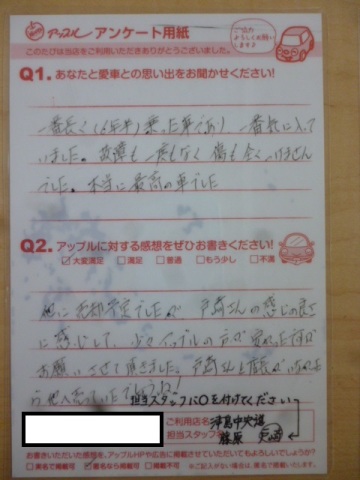 アップル アンケート用紙
ご協力
よろしくお願い
します♪
このたびは当店をご利用いただきありがとうございました。
Q1. あなたと愛車との思い出をお聞かせください!
一番長く(6年半)乗った車であり 一番気に入って
いました。故障も一度もなく 傷も全くつけません
でした。本当に最高の車でした
Q2. アップルに対する感想をぜひお書きください!
□大変満足 □満足 □普通 □もう少し □不満
他に売却予定でしたが 戸崎さんの感じの良さ
に感じて、少々アップルの方が安かったですが
お願いさせて頂きました。戸崎さんと店長がいなかった
ら他へ売っていたでしょうね!
担当スタッフに○を付けてください
ご利用店名 津島中央道
担当スタッフ名 篠原
お書きいただいた感想を、アップルHPや広告に掲載させていただいてもよろしいでしょうか?
□実名で掲載可 □匿名なら掲載可 □掲載不可 ※ご記入がない場合は、匿名で掲載いたします。